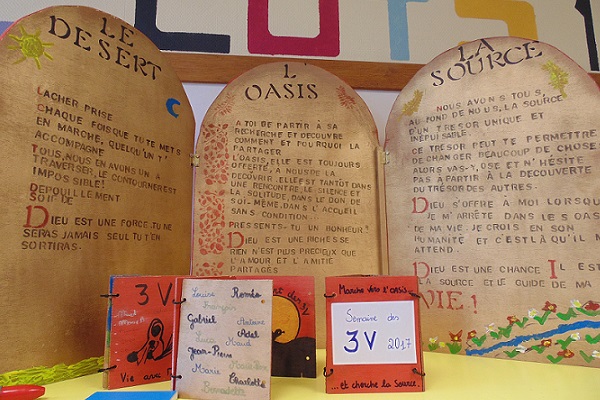 LE
DESERT
LACHER PRISE
CHAQUE FOIS QUE TU TE METS
EN MARCHE, QUELQU'UN T'
ACCOMPAGNE
TOUS, NOUS EN AVONS UN A
TRAVERSER, LE CONTOURNER EST
IMPOSSIBLE!
DEPOUILLEMENT
SOIF DE
DIEU EST UNE FORCE. TU NE
SERAS JAMAIS SEUL. TU T'EN
SORTIRAS.
L'
OASIS
A TOI DE PARTIR A SA
RECHERCHE ET DECOUVRE
COMMENT ET POURQUOI LA
PARTAGER
L'OASIS, ELLE EST TOUJOURS
OFFERTE, A NOUS DE LA
DECOUVRIR. ELLE EST TANTÔT DANS
UNE RENCONTRE, LE SILENCE ET
LA SOLITUDE, DANS LE DON DE
SOI-MÊME, DANS L'ACCUEIL
SANS CONDITION.
PRESENTS-TU UN BONHEUR?
DIEU EST UNE RICHESSE
RIEN N'EST PLUS PRECIEUX QUE
L'AMOUR ET L'AMITIÉ
PARTAGÉS
LA
SOURCE
NOUS AVONS TOUS,
AU FOND DE NOUS, LA SOURCE
D'UN TRESOR UNIQUE ET
INEPUISABLE.
CE TRÉSOR PEUT TE PERMETTRE
DE CHANGER BEAUCOUP DE CHOSES
ALORS VAS-Y, OSE ET N'HÉSITE
PAS A PARTIR À LA DECOUVERTE
DU TRÉSOR DES AUTRES.
DIEU S'OFFRE À MOI LORSQUE
JE M'ARRÊTE DANS LES OAS
DE MA VIE. JE CROIS EN SON
HUMANITÉ ET C'EST LÀ QU'IL M
ATTEND...
DIEU EST UNE CHANCE IL ES
LA SOURCE ET LE GUIDE DE MA
VIE!
3V
Vis avec
Louise Roméo
François
Gabriel Antoine
Adel
Lucie Maude
Jean-Pierre
Marie
Charlotte
Bernadette
Marche vers l'oasis
Semaine des
3V
2017
...et cherche la Source.